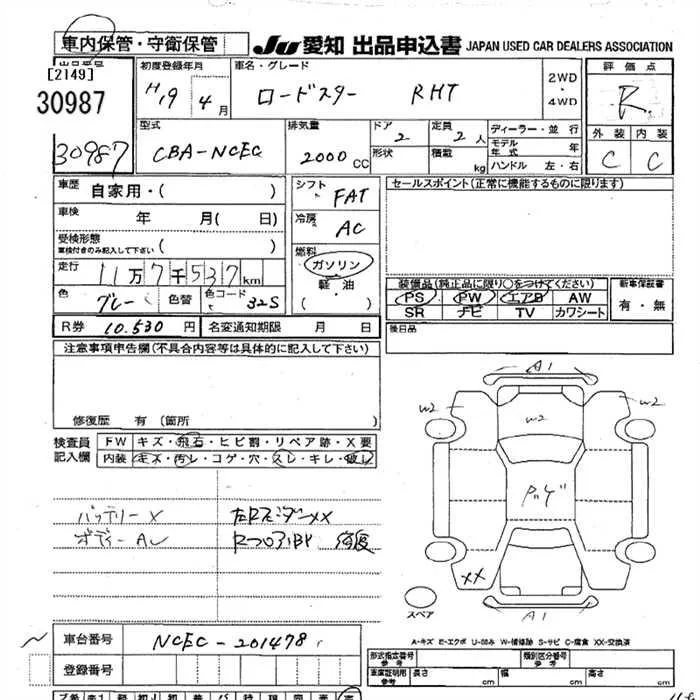 車内保管・守衛保管 JU 愛知 出品申込書 JAPAN USED CAR DEALERS ASSOCIATION
出品番号 [2149] 30987 30987
初度登録年月 H19年 4月
車名・グレード ロードスター RHT
2WD ・ 4WD
評価点 R
外装 内装
C C
型式 CBA-NCEC
排気量 2000 CC
ドア 2 形状
定員 2人 積載 kg
ディーラー・並行
モデル年式 年
ハンドル 左・右
車歴 自家用・( )
シフト FAT
セールスポイント(正常に機能するものに限ります)
車検 年 月( 日)
冷房 AC
受検形態 車検付きのみ記入して下さい ( )
燃料 ガソリン
軽・油
・( )
走行 11万7千537km
色 グレー 色替 色コード 32S
装備品(純正品に限り○をつけてください) 新車保証書
PS PW エアB AW 有・無
SR ナビ TV カワシート
R券 10,530円 名変通知期限 月 日
後日品
注意事項申告欄(不具合内容等は具体的に記入して下さい)
修復歴 有(箇所 )
検査員記入欄 FW キズ・飛石・ヒビ割・リペア跡・X要
内装 キズ・汚レ・コゲ・穴・スレ・キレ・破レ
バッテリーX
A1
W2 W2 W2
XX
A1
スペア
A-キズ E-エクボ U-凹み W-補修跡 S-サビ C-腐食 XX-交換済
車台番号 NCEC-201478
登録番号
形式指定番号 参考 類別区分番号 参考
車庫証明用 参考 長さ cm 幅 cm 高さ cm